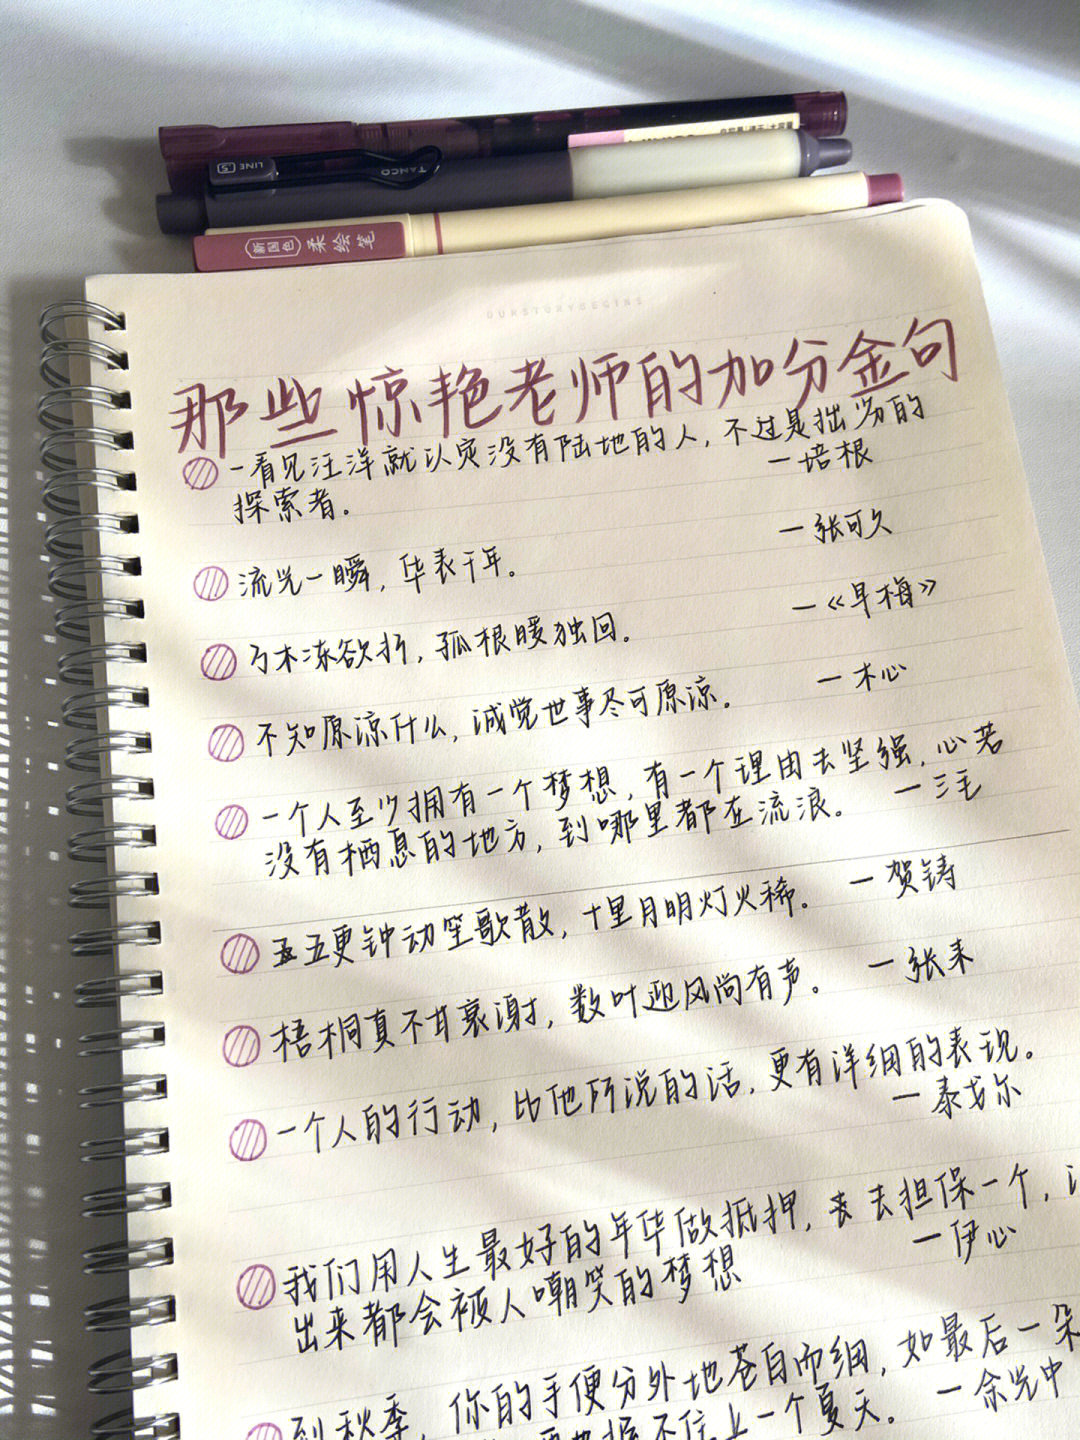 LINE
TANCO
新国色
柔绘笔
OURSTORYBEGINS
那些惊艳老师的加分金句
一看见汪洋就认定没有陆地的人，不过是拙劣的
探索者。
—培根
流光一瞬，华表千年。
—张可久
万木冻欲折，孤根暖独回。
—《早梅》
不知原谅什么，诚觉世事尽可原谅。
—木心
一个人至少拥有一个梦想，有一个理由去坚强，心若
没有栖息的地方，到哪里都在流浪。
—三毛
五更钟动笙歌散，十里月明灯火稀。
—贺铸
梧桐真不甘衰谢，数叶迎风尚有声。
—张耒
一个人的行动，比他所说的话，更有详细的表现。
—泰戈尔
我们用人生最好的年华做抵押，去担保一个，
出来都会被人嘲笑的梦想
—伊心
到秋季，你的手便分外地苍白而细，如最后一朵
握不住上一个夏天。
—余光中